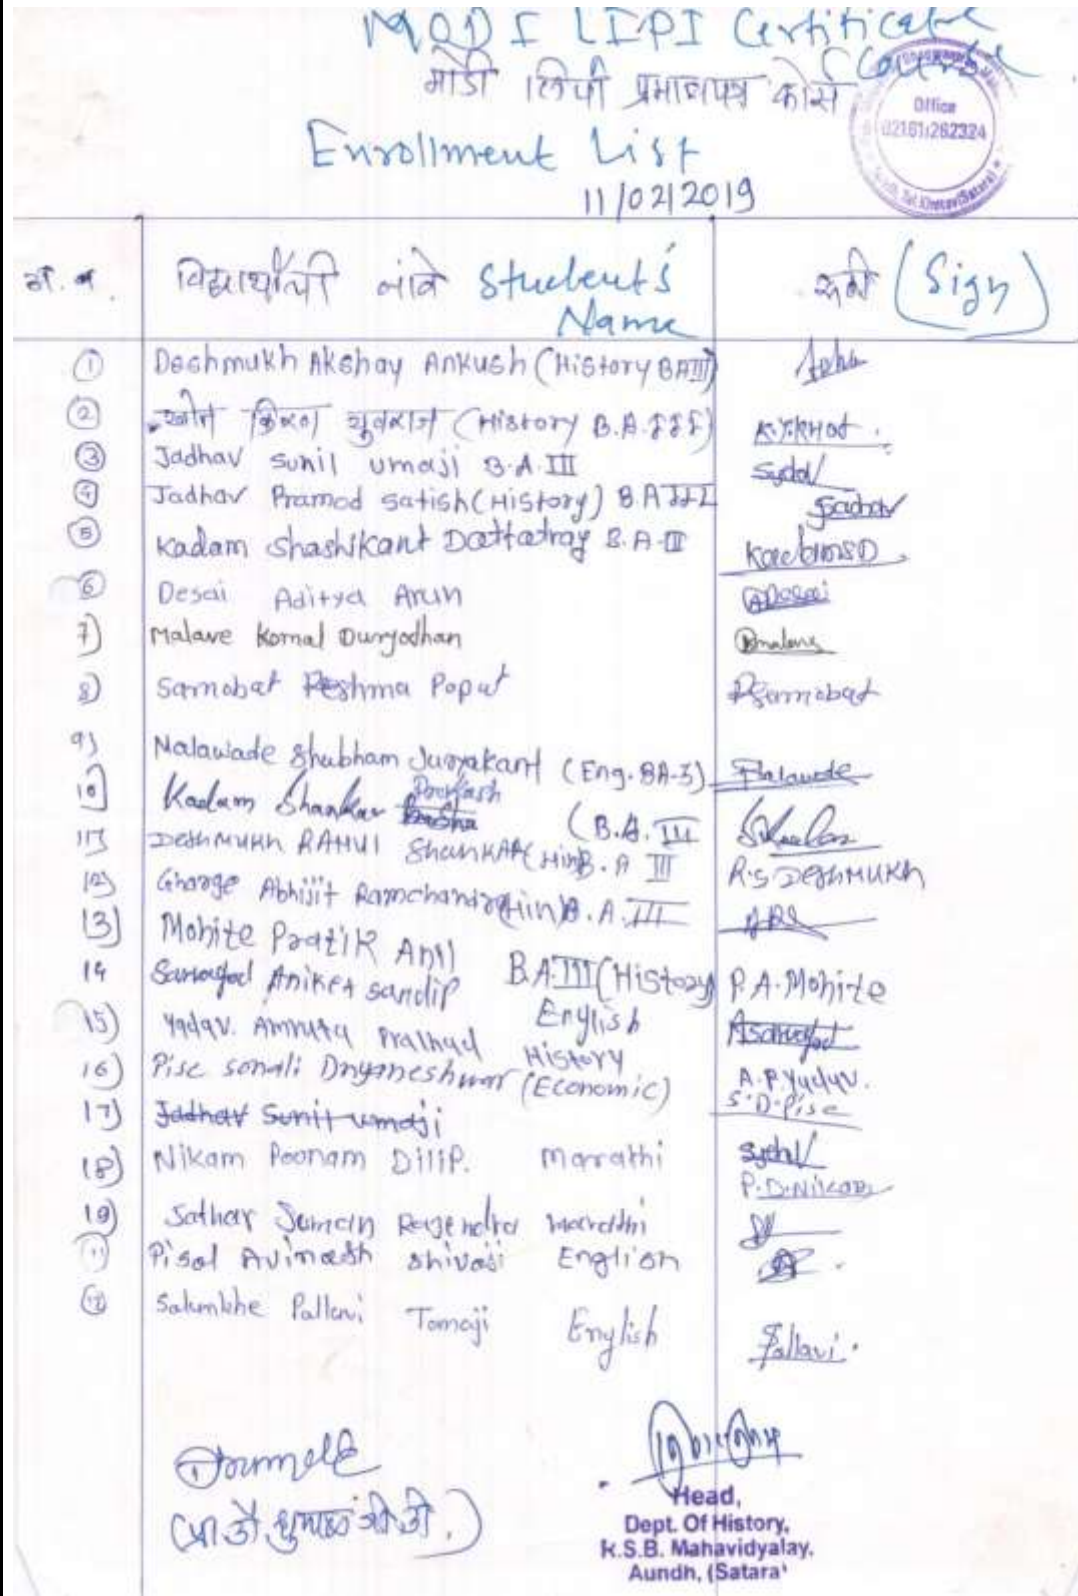 MODI LIPI Certificate
Course
मोडी लिपी प्रमाणपत्र कोर्स
Office
02161-262324
Enrollment List
11/02/2019
विद्यार्थ्याचे नांवे Student's
Name
सही (Sign)
1 Deshmukh Akshay Ankush (History BAIII)
2 खोत किरण युवराज (History B.A.III) K.Y.KHOt.
3 Jadhav Sunil Umaji B.A.III
4 Jadhav Pramod Satish (History) B.A III Jadhav
5 Kadam Shashikant Dattatray B.A-III KadamSD.
6 Desai Aditya Arun ADesai
7) Malave Komal Duryodhan
8) Sarnobat Reshma Popat RSarnobat
9) Nalawade Shubham Suryakant (Eng. BA-3) Nalawade
10) Kadam Shankar Prakash (B.A. III
11) DESHMUKH RAHUL SHANKAR (Hin) B.A III R.S DESHMUKH
12) Gharge Abhijit Ramchandra (Hin) B.A.III
13) Mohite Pratik Anil B.A III (History) P.A.Mohite
14 Aniket Sandip English
15) Yadav. Amruta Pralhad History A.P.Yadav.
16) Pise Sonali Dnyaneshwar (Economic) S.D.Pise
17) Jadhav Sunil Umaji
18) Nikam Poonam Dilip. Marathi P.D.Nikam
19) Suman Rajendra Marathi
11 Pisal Avinash Shivaji English
12 Salunkhe Pallavi Tomaji English Pallavi.
Head,
Dept. Of History,
K.S.B. Mahavidyalay.
Aundh, (Satara)